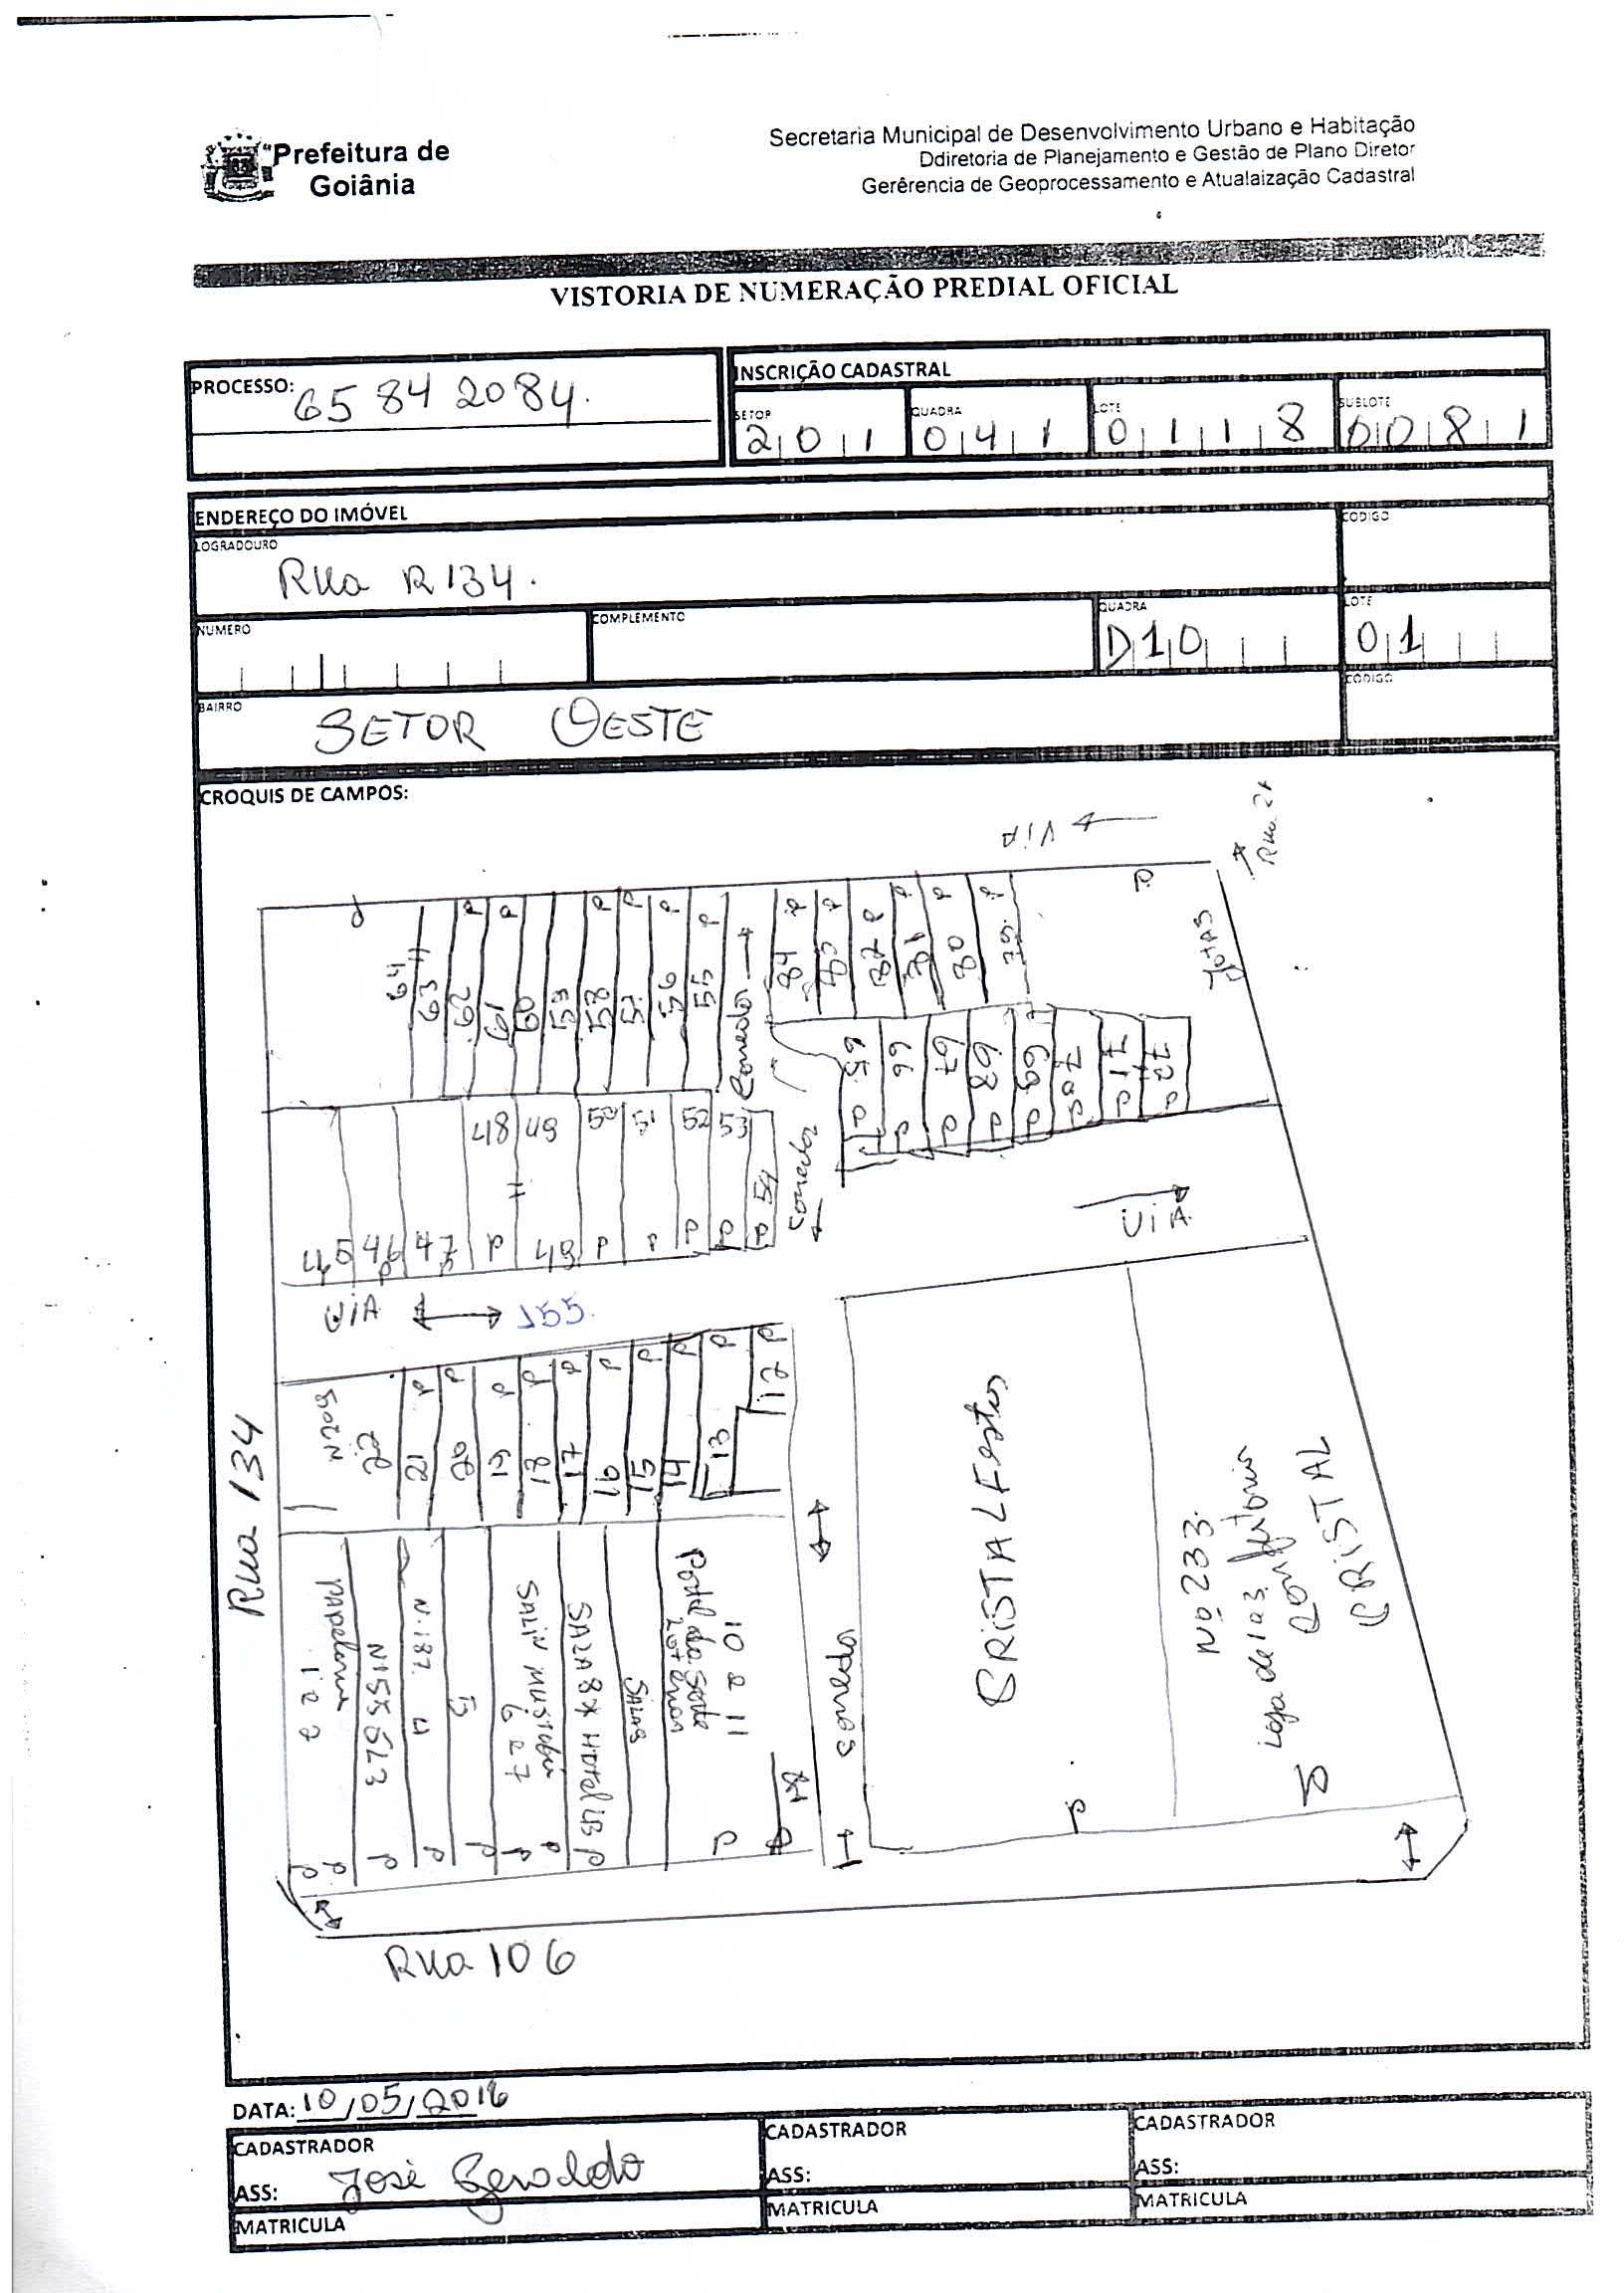 Prefeitura de
Goiânia
Secretaria Municipal de Desenvolvimento Urbano e Habitação
Ddiretoria de Planejamento e Gestão de Plano Diretor
Gerêrencia de Geoprocessamento e Atualaização Cadastral
VISTORIA DE NUMERAÇÃO PREDIAL OFICIAL
PROCESSO: 65842084.
INSCRIÇÃO CADASTRAL
SETOR 201
QUADRA 041
LOTE 0118
SUBLOTE 0081
ENDEREÇO DO IMÓVEL
LOGRADOURO
Rua R134.
CODIGO
NUMERO
COMPLEMENTO
QUADRA
D10
LOTE
01
BAIRRO
SETOR OESTE
CODIGO
CROQUIS DE CAMPOS:
VIA
P
64
63
62 P
61 P
60
59
58 P
57 P
56 P
55 P
Corredor
84 P
83 P
82 P
81 P
80 P
79 P
P
65 P
66 P
67 P
68 P
69 P
70 P
71 P
72 P
45
46 P
47
48 P
49
49
50 P
51 P
52 P
53 P
54 P
Corredor
VIA
VIA 155.
Rua 134
22
21 P
20 P
19 P
18 P
17 P
16 P
15 P
14 P
13 P
12 P
Papelaria
1 e 2
P P
P
N.187 4
P
5
P
6 e 7
P P
P
Salas
Portal da Sorte
Loterias
10 e 11
P
Corredor
CRISTAL Festas
P
Nº 233.
Loja de 1 a 3
CRISTAL
Rua 106
DATA: 10/05/2016
CADASTRADOR
ASS: José Geraldo
MATRICULA
CADASTRADOR
ASS:
MATRICULA
CADASTRADOR
ASS:
MATRICULA